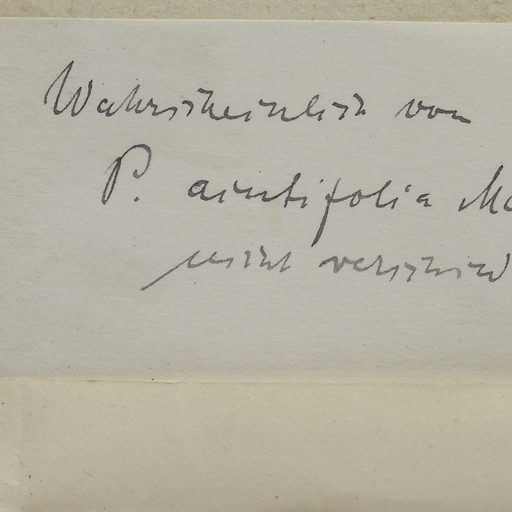 Wahrscheinlich von
P. acutifolia Mc
nicht verschied